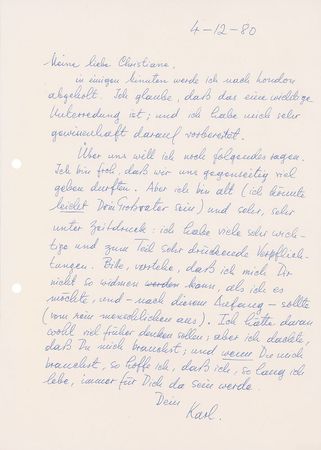 4-12-80
Meine liebe Christiane.
in einigen Minuten werde ich nach London
abgeholt. Ich glaube, daß das eine wichtige
Unterredung ist; und ich habe mich sehr
gewissenhaft darauf vorbereitet.
Über uns will ich noch folgendes sagen.
Ich bin froh, daß wir uns gegenseitig viel
geben durften. Aber ich bin alt (ich könnte
leicht Dein Großvater sein) und sehr, sehr
unter Zeitdruck: ich habe viele sehr wich-
tige und zum Teil sehr drückende Verpflich-
tungen. Bitte, verstehe, daß ich mich Dir
nicht so widmen werden kann, als ich es
möchte, und - nach diesem Anfang - sollte
(vom rein menschlichen aus). Ich hätte daran
wohl viel früher denken sollen; aber ich dachte,
daß Du mich brauchst; und wenn Du mich
brauchst, so hoffe ich, daß ich, so lang ich
lebe, immer für Dich da sein werde.
Dein
Karl.